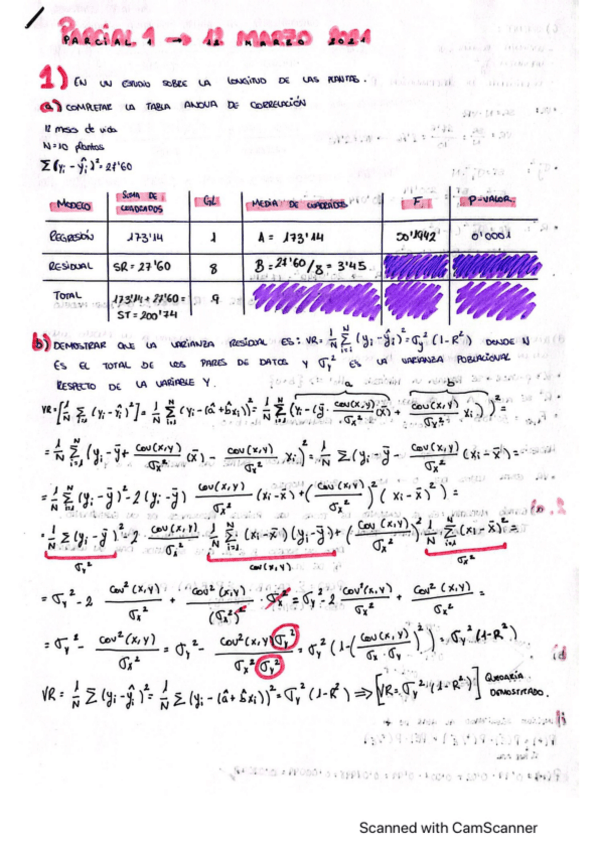 PARCIAL 1 → 12 MARZO 2021
1) EN UN ESTUDIO SOBRE LA LONGITUD DE LAS PLANTAS.
a) COMPLETAR LA TABLA ANOVA DE CORRELACIÓN
12 meses de vida
N=10 plantas
Σ(yᵢ - ŷᵢ)² = 27'60
MODELO SUMA DE CUADRADOS GL MEDIA DE CUADRADOS F P-VALOR
REGRESIÓN 173'14 1 A = 173'14 50'1942 0'0001
RESIDUAL SR = 27'60 8 B = 27'60/8 = 3'45
TOTAL 173'14 + 27'60 = ST = 200'74 9
b) DEMOSTRAR QUE LA VARIANZA RESIDUAL ES: VR = 1/N Σᵢ₌₁ᴺ (yᵢ - ŷᵢ)² = σy² (1-R²) DONDE N
ES EL TOTAL DE LOS PARES DE DATOS Y σy² ES LA VARIANZA POBLACIONAL
RESPECTO DE LA VARIABLE Y.
a b
VR = [1/N Σᵢ₌₁ᴺ (yᵢ - ŷᵢ)²] = 1/N Σᵢ₌₁ᴺ (yᵢ - (â + b̂xᵢ))² = 1/N Σᵢ₌₁ᴺ (yᵢ - (ȳ - cov(x,y)/σx² (x̄) + cov(x,y)/σx² xᵢ))² =
= 1/N Σᵢ₌₁ᴺ (yᵢ - ȳ + cov(x,y)/σx² (x̄) - cov(x,y)/σx² xᵢ)² = 1/N Σ (yᵢ - ȳ - cov(x,y)/σx² (xᵢ - x̄) =
= 1/N Σᵢ₌₁ᴺ (yᵢ - ȳ)² - 2 (yᵢ - ȳ) cov(x,y)/σx² (xᵢ - x̄) + (cov(x,y)/σx²)² (xᵢ - x̄)²) =
= 1/N Σ (yᵢ - ȳ)² - 2 · cov(x,y)/σx² · 1/N Σᵢ₌₁ᴺ (xᵢ - x̄)(yᵢ - ȳ) + (cov(x,y)/σx²)² 1/N · Σᵢ₌₁ᴺ (xᵢ - x̄)² =
σy² cov(x,y) σx²
= σy² - 2 cov²(x,y)/σx² + cov²(x,y)/(σx²)² · σx² = σy² - 2 cov²(x,y)/σx² + cov²(x,y)/σx² =
= σy² - cov²(x,y)/σx² = σy² - cov²(x,y) σy²/σx² σy² = σy² (1 - (cov(x,y)/σx · σy)²) = σy² (1-R²)
VR = 1/N Σ (yᵢ - ŷᵢ)² = 1/N Σ (yᵢ - (â + b̂xᵢ))² = σy² (1-R²) ⟹ [VR = σy² · (1-R²)] QUEDARÍA
DEMOSTRADO.
Scanned with CamScanner